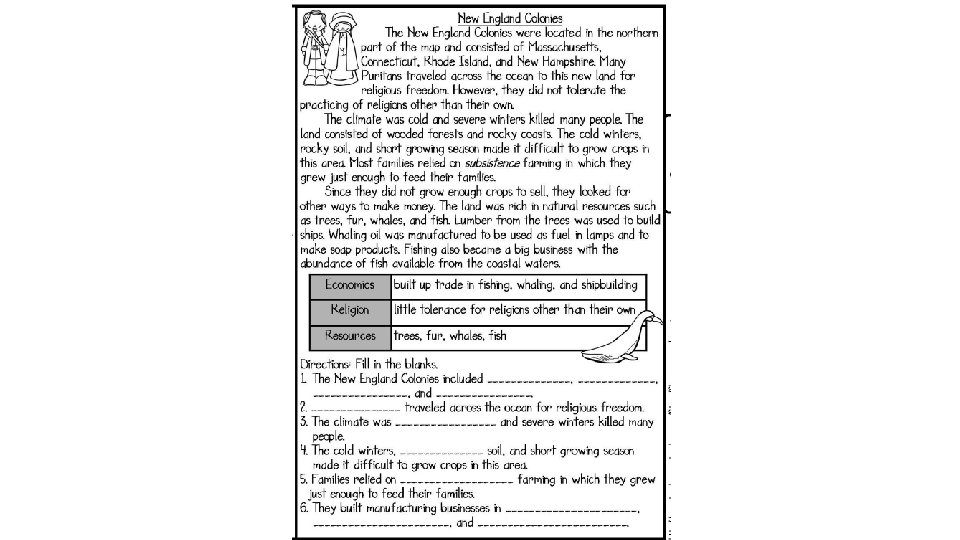 New England Colonies
The New England Colonies were located in the northern
part of the map and consisted of Massachusetts,
Connecticut, Rhode Island, and New Hampshire. Many
Puritans traveled across the ocean to this new land for
religious freedom. However, they did not tolerate the
practicing of religions other than their own.
The climate was cold and severe winters killed many people. The
land consisted of wooded forests and rocky coasts. The cold winters,
rocky soil, and short growing season made it difficult to grow crops in
this area. Most families relied on subsistence farming in which they
grew just enough to feed their families.
Since they did not grow enough crops to sell, they looked for
other ways to make money. The land was rich in natural resources such
as trees, fur, whales, and fish. Lumber from the trees was used to build
ships. Whaling oil was manufactured to be used as fuel in lamps and to
make soap products. Fishing also became a big business with the
abundance of fish available from the coastal waters.
Economics built up trade in fishing, whaling, and shipbuilding
Religion little tolerance for religions other than their own
Resources trees, fur, whales, fish
Directions: Fill in the blanks.
1. The New England Colonies included _______________, ______________,
_________________, and _________________.
2. ________________ traveled across the ocean for religious freedom.
3. The climate was __________________ and severe winters killed many
people.
4. The cold winters, _______________ soil, and short growing season
made it difficult to grow crops in this area.
5. Families relied on ____________________ farming in which they grew
just enough to feed their families.
6. They built manufacturing businesses in ________________________,
________________________, and ___________________________.